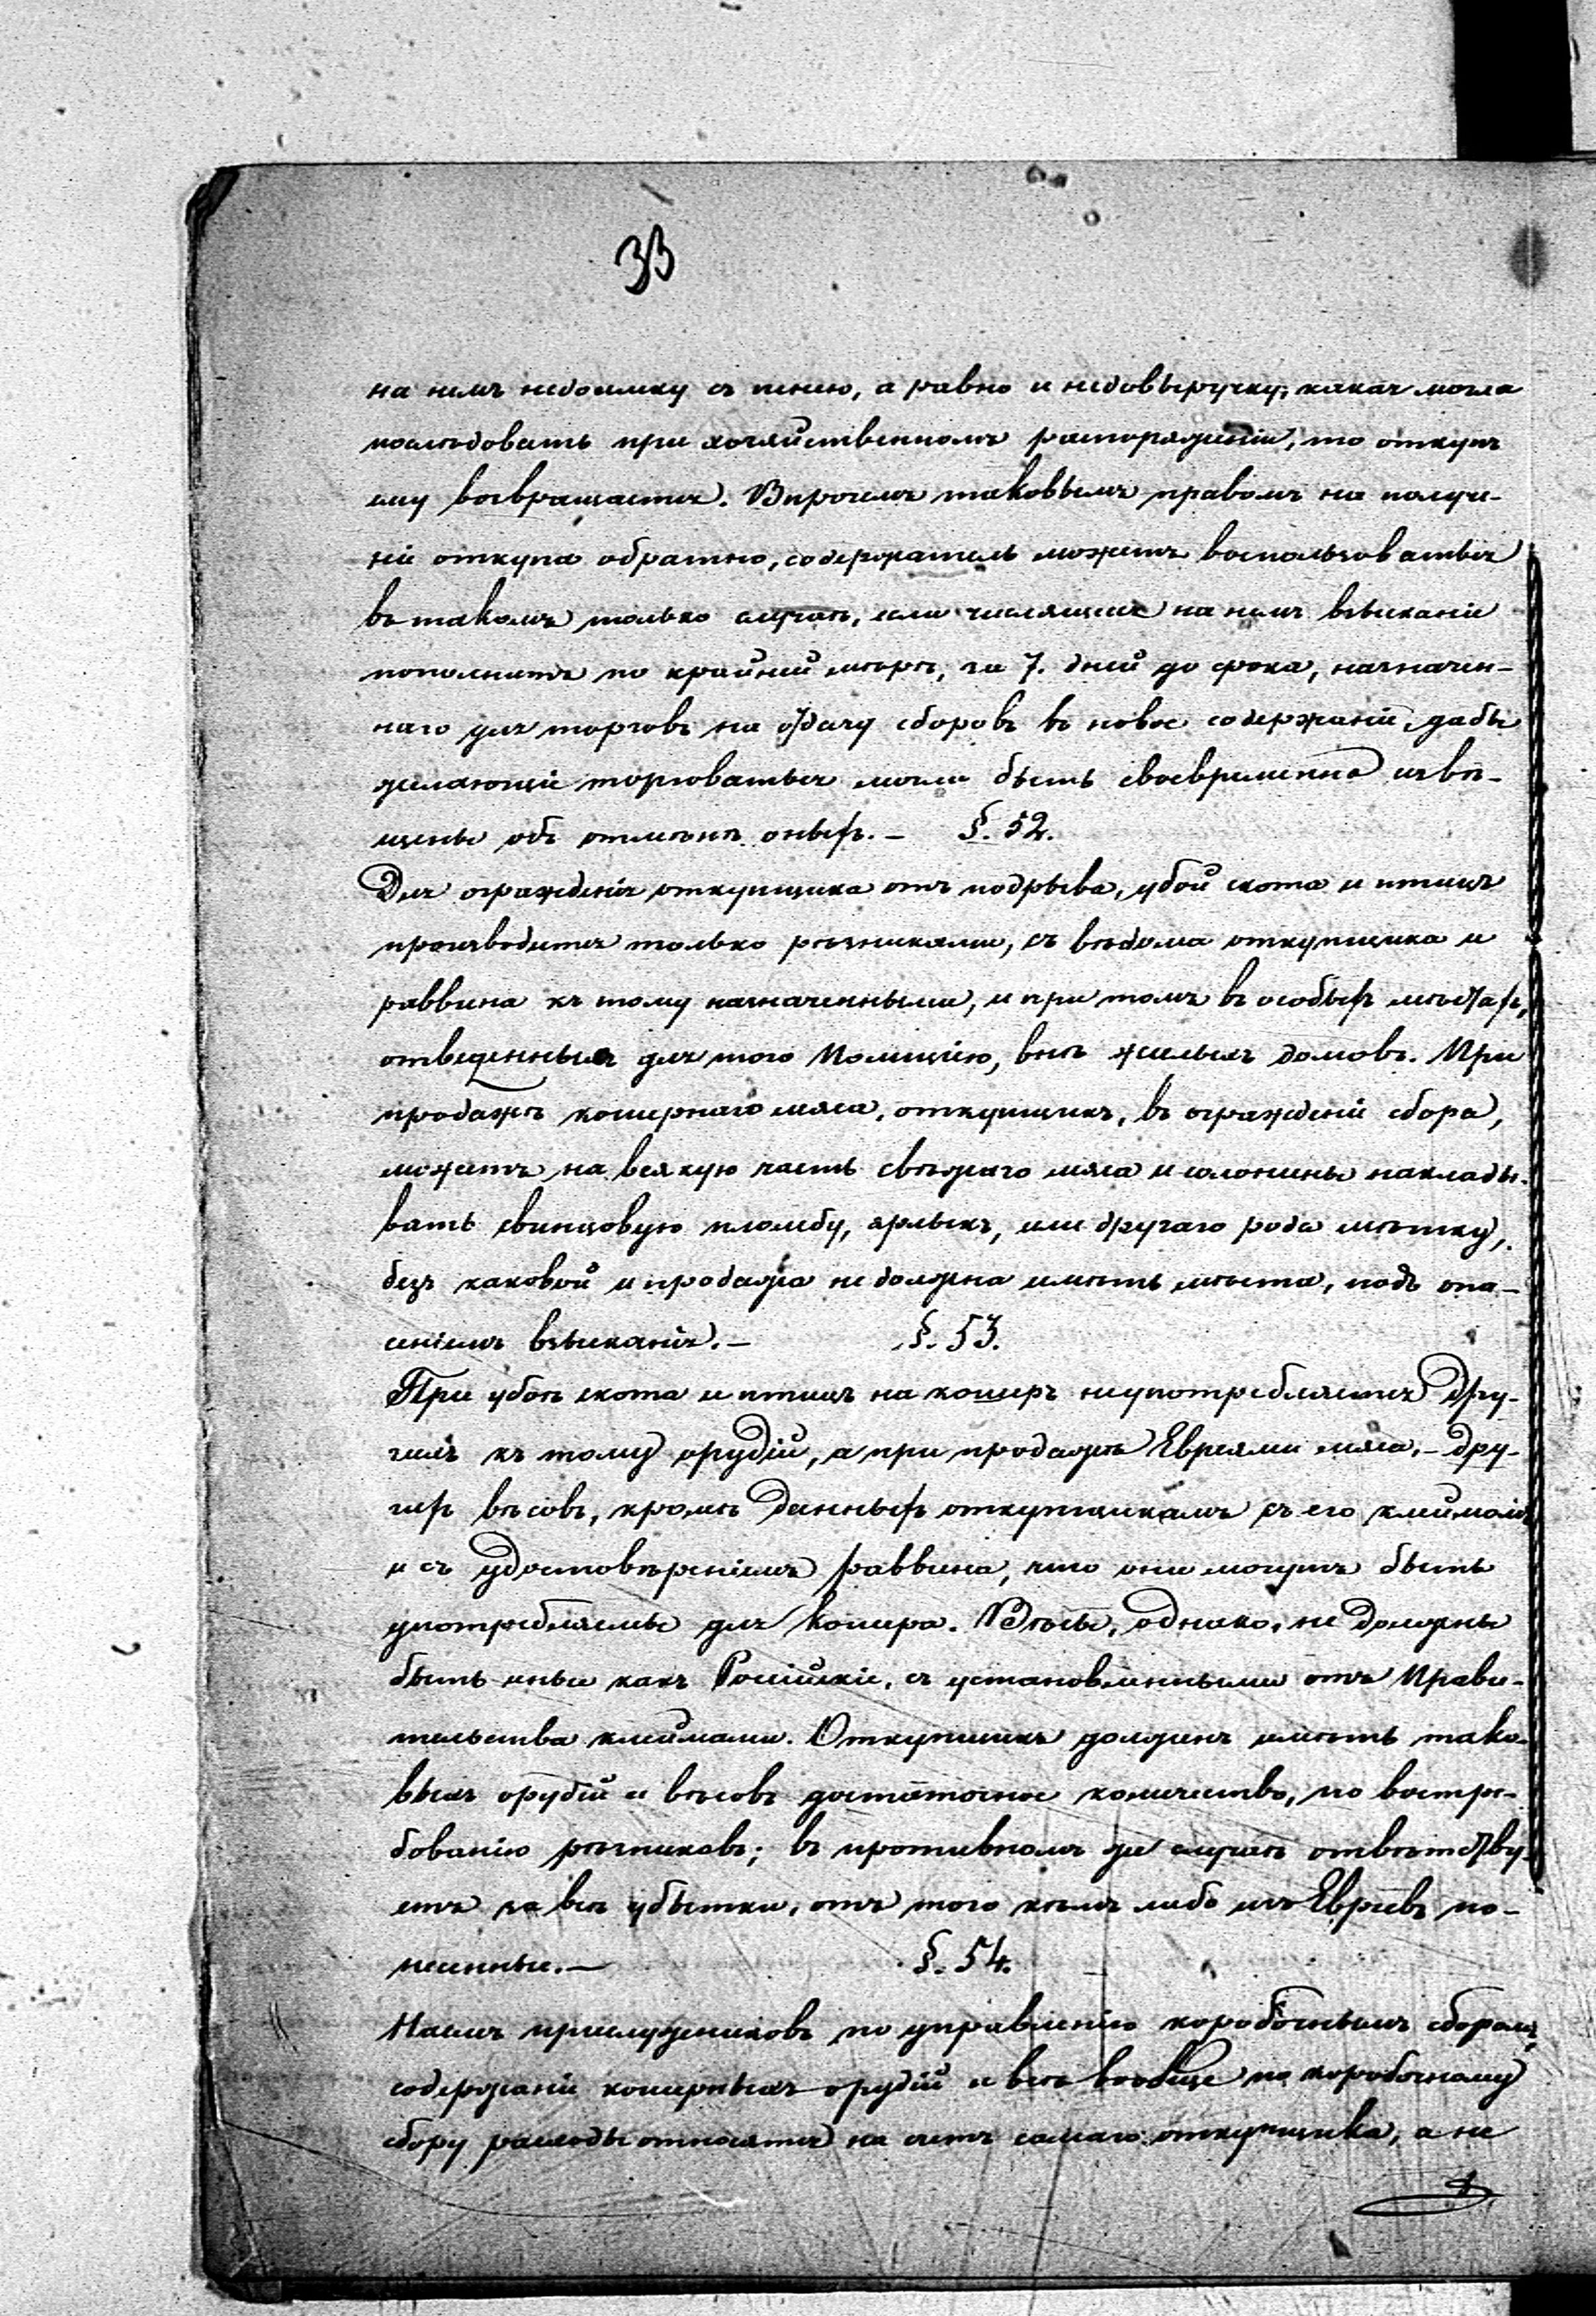 33
на немъ недоимку съ пенею, а равно и недовыручку, какая могла
послѣдовать при хозяйственномъ распоряженіи, то откупъ
ему возвращается. Впрочемъ таковымъ правомъ на получе-
ніе откупа обратно, содержатель можетъ воспользоваться
въ такомъ только случаѣ, если числящееся на немъ взысканіе
пополнитъ по крайней мѣрѣ, за 7. дней до срока, назначен-
наго для торговъ на отдачу сборовъ въ новое содержаніе, дабы
желающіе торговаться могли быть своевременно извѣ-
щены объ отмѣнѣ оныхъ.— §. 52.
Для огражденія откупщика отъ подрыва, убой скота и птицъ
производится только рѣзниками, съ вѣдома откупщика и
раввина къ тому назначенными, и при томъ въ особыхъ мѣстахъ,
отведенныхъ для того Полиціею, внѣ жилыхъ домовъ. При
продажѣ кошернаго мяса, откупщикъ, въ огражденіе сбора,
можетъ на всякую часть свѣжаго мяса и солонины наклады-
вать свинцовую пломбу, ярлыкъ, или другаго рода мѣтку,
безъ каковой и продажа не должна имѣть мѣста, подъ опа-
сеніемъ взысканія.— §. 53.
При убоѣ скота и птицъ на кошеръ неупотребляется дру-
гихъ къ тому орудій, а при продажѣ Евреями мяса,— дру-
гихъ вѣсовъ, кромѣ данныхъ откупщикамъ съ его клеймомъ
и съ удостовѣреніемъ раввина, что они могутъ быть
употребляемы для кошера. Вѣсы, однако, не должны
быть иные какъ Россійскіе, съ установленными отъ Прави-
тельства клеймами. Откупщикъ долженъ имѣть тако-
выхъ орудій и вѣсовъ достаточное количество, по востре-
бованію рѣзниковъ; въ противномъ же случаѣ отвѣтству-
етъ за всѣ убытки, отъ того кѣмъ либо изъ Евреевъ по-
несенные.— §. 54.
Наемъ прислужниковъ по управленію коробочнымъ сборомъ,
содержаніе кошерныхъ орудій и всѣ вообще по коробочному
сбору расходы относятся на счетъ самаго откупщика, а не